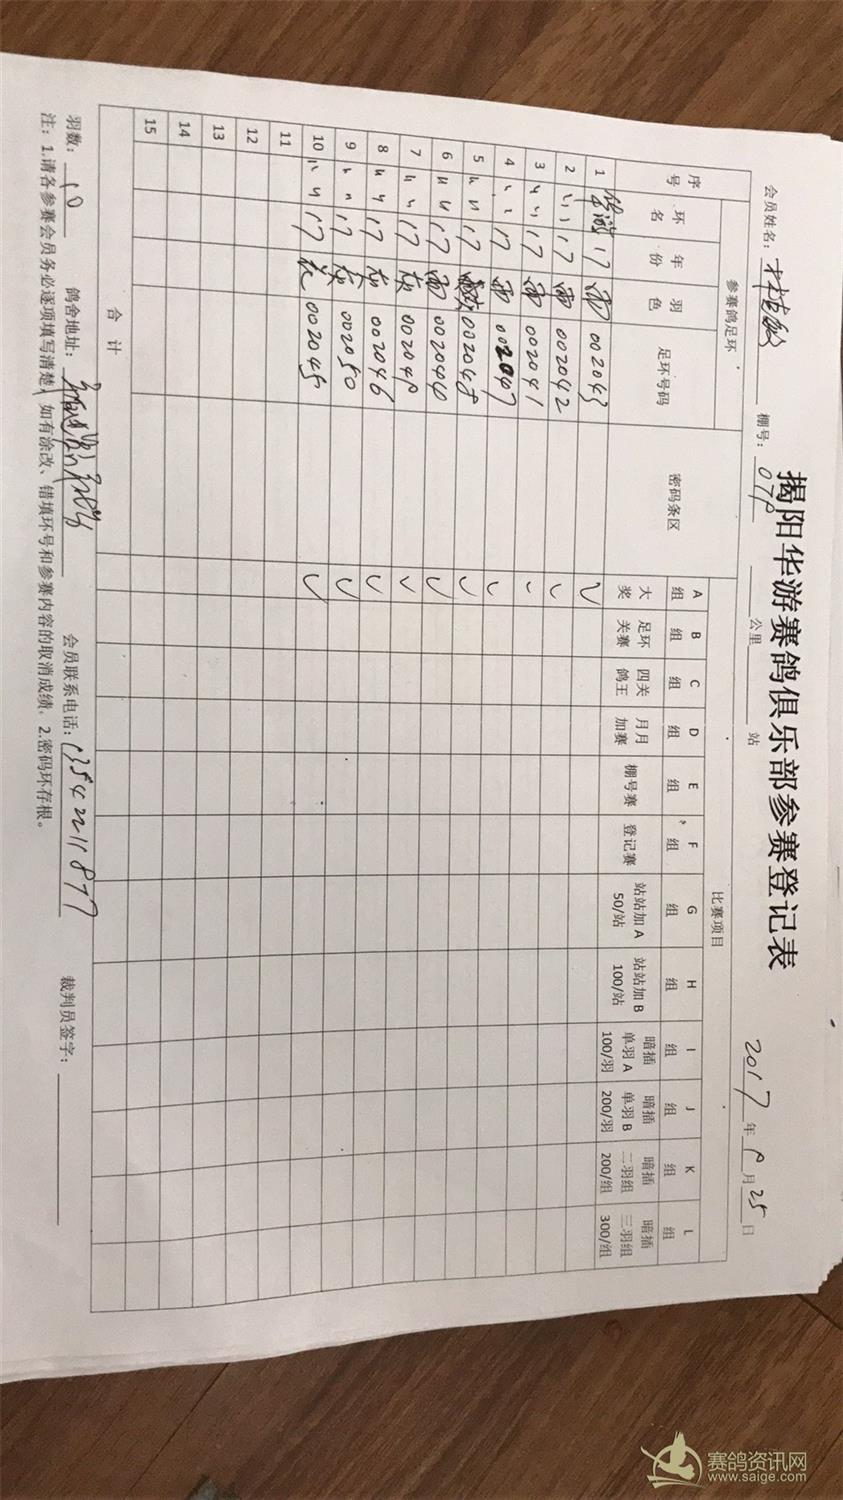 揭阳华游赛鸽俱乐部参赛登记表
会员姓名： 棚号：079 公里 站 2017年9月25日
参赛鸽足环 比赛项目
序号 环名 年份 羽色 足环号码 密码条区 A组 B组 C组 D组 E组 F组 G组 H组 I组 J组 K组 L组
大奖 足环关赛 四关鸽王 月月加赛 棚号赛 登记赛 站站加A 50/站 站站加B 100/站 暗插单羽A 100/羽 暗插单羽B 200/羽 暗插二羽组 200/组 暗插三羽组 300/组
1 华游 17 雨 002043 ✓
2 〃 〃 17 雨 002042 ✓
3 〃 〃 17 雨 002041 ✓
4 〃 〃 17 雨 002047 ✓
5 〃 〃 17 002048 ✓
6 〃 〃 17 雨 002044 ✓
7 〃 〃 17 灰 002049 ✓
8 〃 〃 17 灰 002046 ✓
9 〃 〃 17 灰 002050 ✓
10 〃 〃 17 花 002045 ✓
11
12
13
14
15
合计
羽数：10 鸽舍地址： 会员联系电话：13542211877 裁判员签字：
注：1.请各参赛会员务必逐项填写清楚，如有涂改、错填环号和参赛内容的取消成绩。2.密码环存根。
赛鸽资讯网
www.saige.com